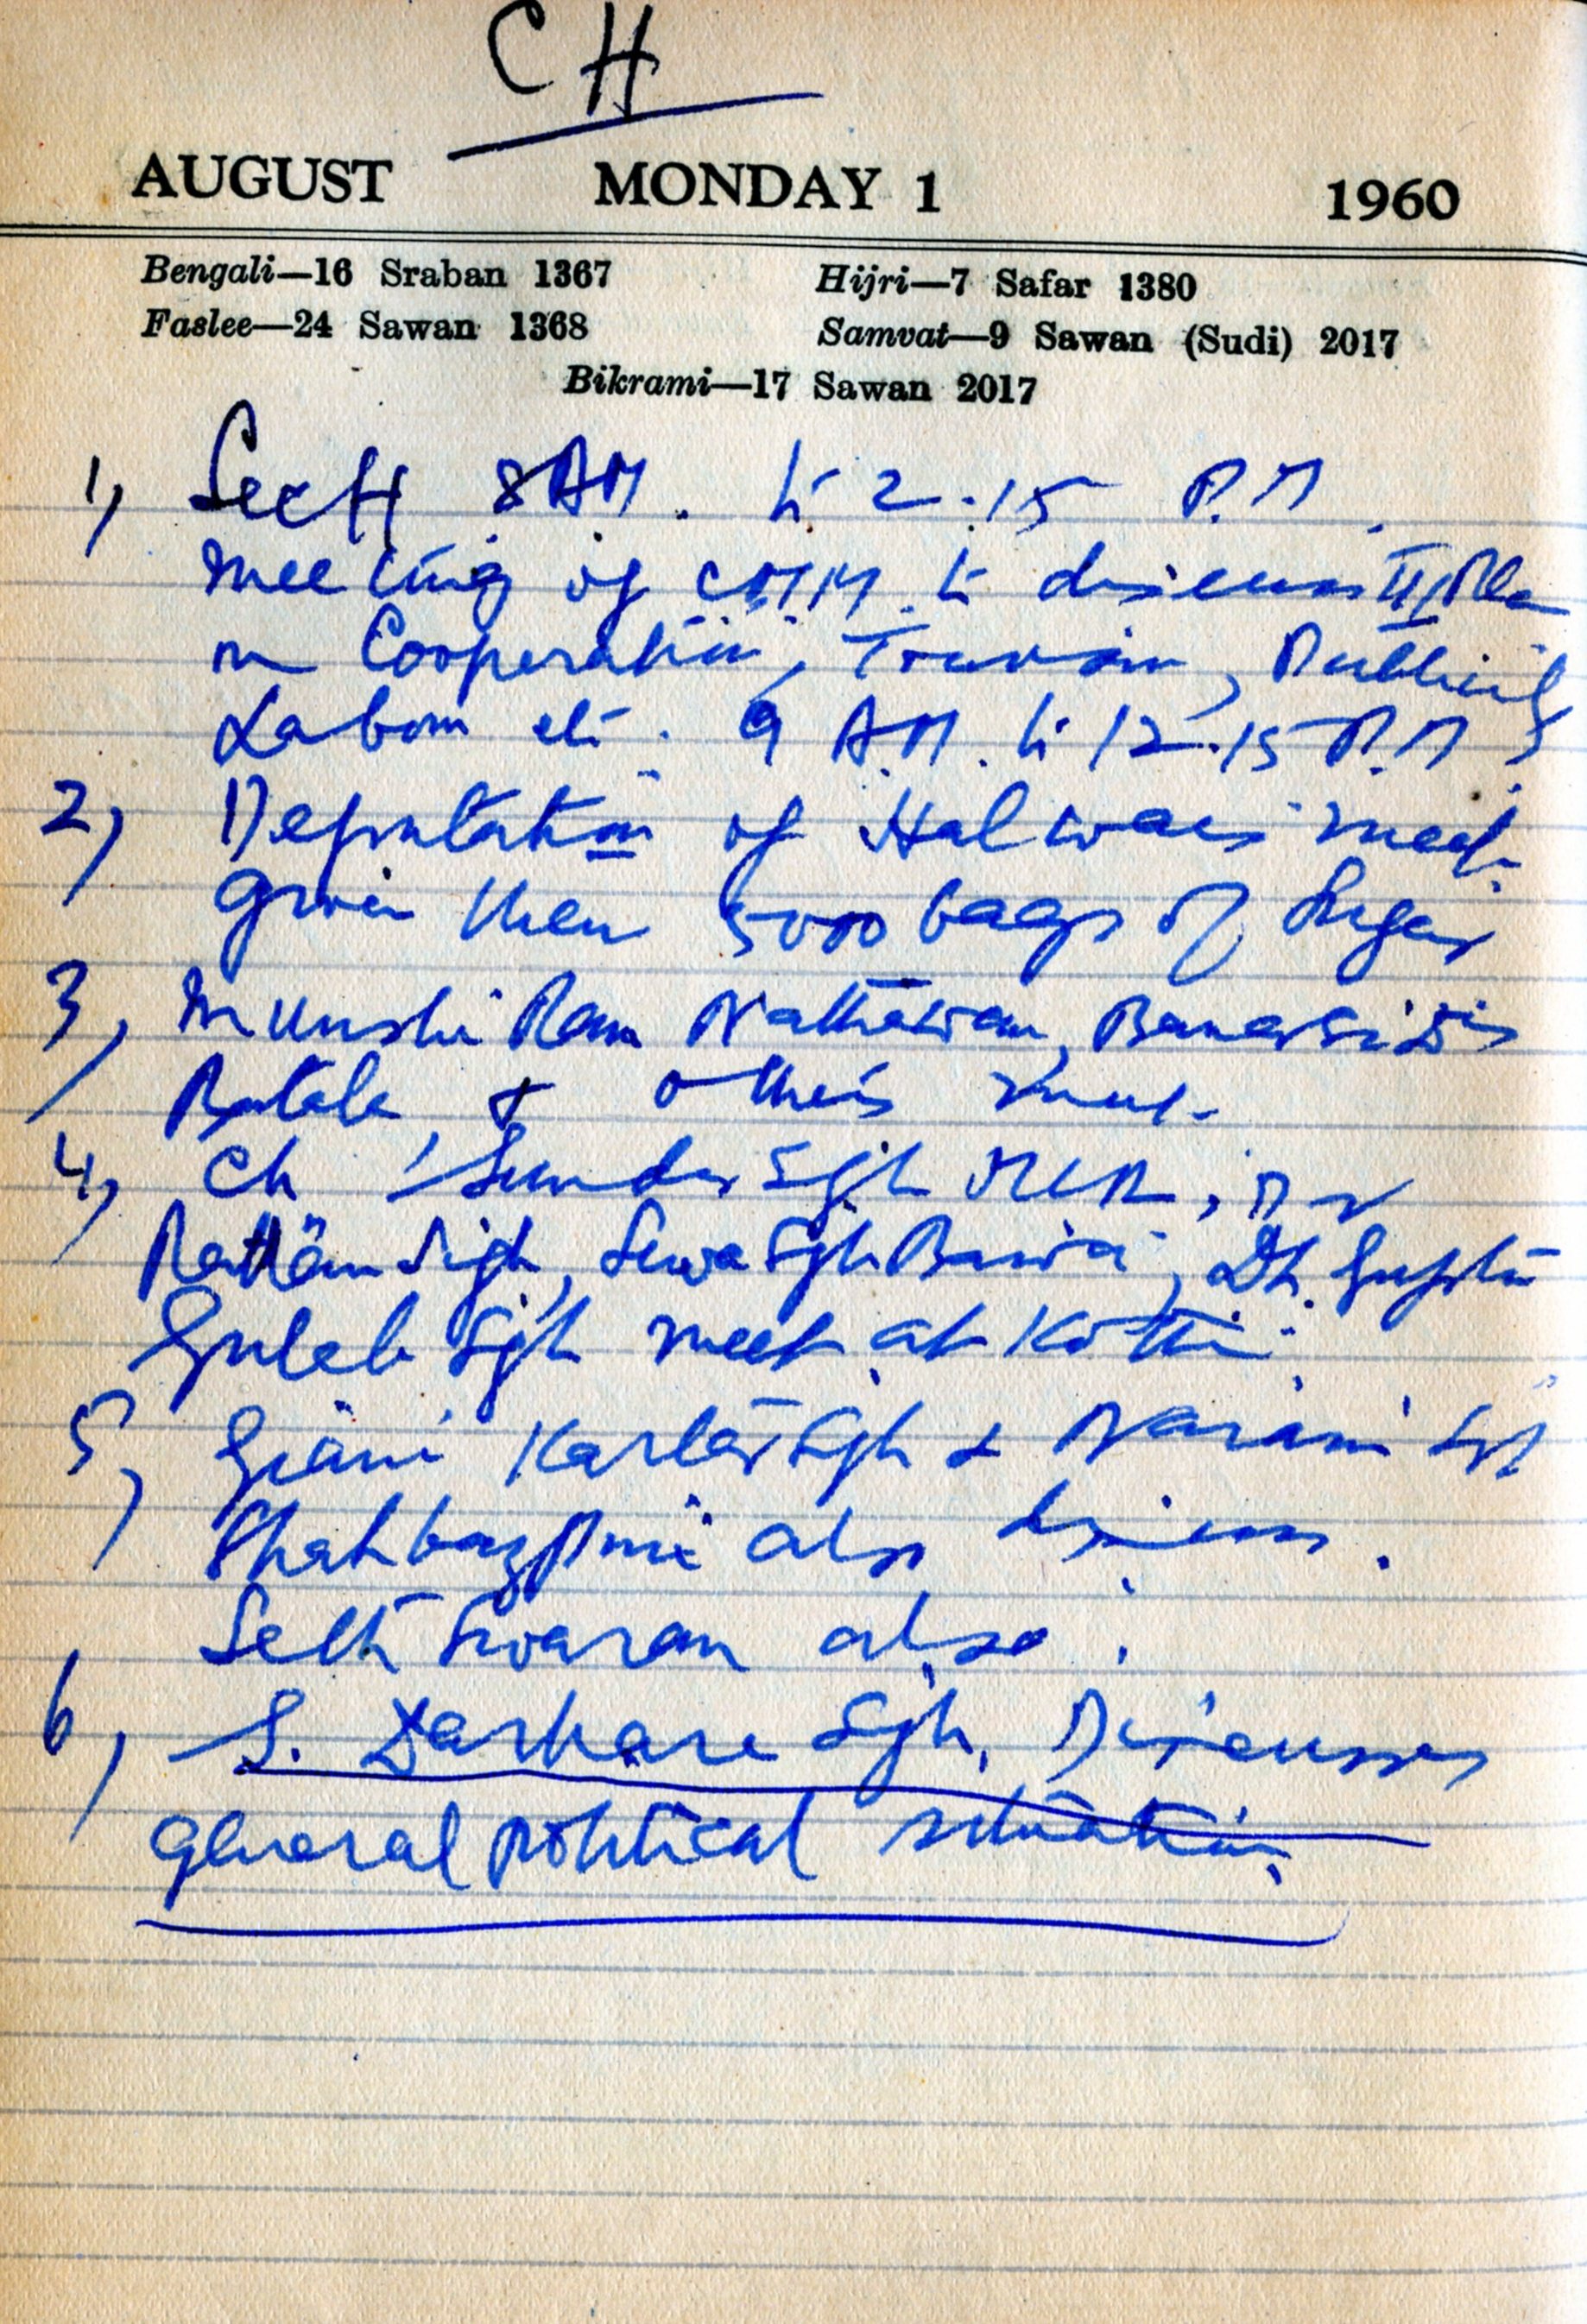 CH
AUGUST MONDAY 1 1960
Bengali—16 Sraban 1367 Hijri—7 Safar 1380
Faslee—24 Sawan 1368 Samvat—9 Sawan (Sudi) 2017
Bikrami—17 Sawan 2017
1, Sectt 8 AM. to 2.15 P.M.
Meeting of to discuss Plan
on Cooperation, Tourism, Publicity
Labour etc. 9 A.M. to 12.15 P.M
2, Deputation of Halwais meet.
given them 5000 bags of Sugar
3, Munshi Ram
Batala & others meet.
4, Ch Sunder Sgh MLA,
Rattan Sigh, Sewa Sgh Gupta
Gulab Sgh meet at Kothi.
5, Giani Kartar Sgh & Narain Sgh
Shahbazpuri also discuss.
Seth Swaran also.
6, S. Darbara Sgh, Discusses
general political situation,